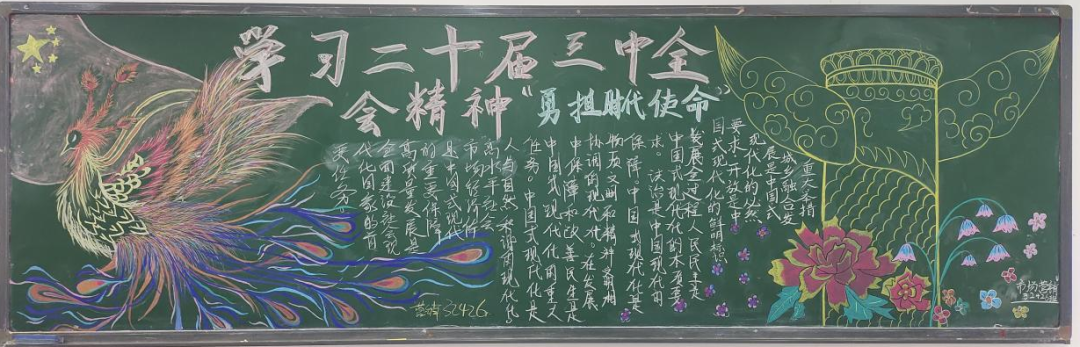 学习二十届三中全
会精神“勇担时代使命”
重大
城乡融合发
展是中国式
现代化的必然
要求。开放是中
国式现代化的鲜明标识
发展全过程人民民主是
中国式现代化的本质要
求。法治是中国式现代化的
保障 中国式现代化是
物质文明和精神文明相
协调的现代化。在发展
中保障和改善民生是
中国式现代化的重大
任务。中国式现代化是
人与自然和谐的现代化
高水平社会
市场经济体
是中国式现代
的重要保障
高质量发展是
全面建设社会现
代化国家的首
要任务。
32426
市场营销